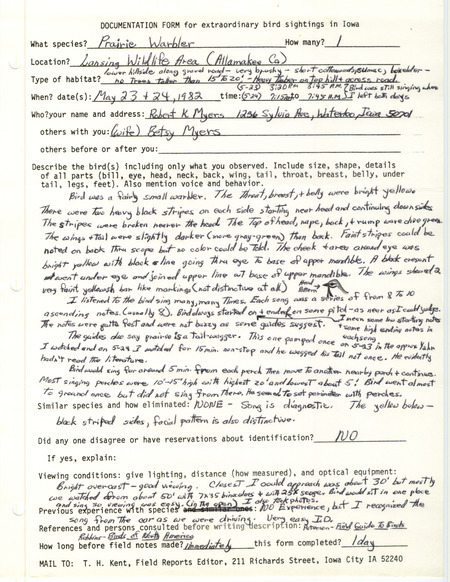 DOCUMENTATION FORM for extraordinary bird sightings in Iowa
What species? Prairie Warbler How many? 1
Location? Lansing Wildlife Area (Allamakee Co)
lower hillside along gravel road - very brushy - short cottonwoods, sumac, boxelder -
Type of habitat? no trees taller than 15' to 20' - Heavy timber on top hill & across road.
(5-23) 3:20 PM 3:45 P.M. Bird was still singing when
When? date(s): May 23 + 24, 1982 time: (5-24) 7:15 AM to 7:45 A.M. I left both days
Who? your name and address: Robert K. Myers 1256 Sylvia Ave, Waterloo, Iowa 50701
others with you: (wife) Betsy Myers
others before or after you:
Describe the bird(s) including only what you observed. Include size, shape, details
of all parts (bill, eye, head, neck, back, wing, tail, throat, breast, belly, under
tail, legs, feet). Also mention voice and behavior.
Bird was a fairly small warbler. The throat, breast, + belly were bright yellow.
There were two heavy black stripes on each side starting near head and continuing down sides.
The stripes were broken nearer the head. The top of head, nape, back, + rump were olive green.
The wings + tail were slightly darker (more gray-green) than back. Faint stripes could be
noted on back thru scope but no color could be told. The cheek + area around eye was
bright yellow with black line going thru eye to base of upper mandible. A black crescent
went under eye and joined upper line at base of upper mandible. The wings showed 2
very faint yellowish bar like markings (not distinctive at all) Head Pattern
I listened to the bird sing many, many times. Each song was a series of from 8 to 10
ascending notes. (usually 8). Bird always started on + ended on same pitch - as near as I could judge.
I mean same low starting notes
The notes were quite fast and were not buzzy as some guides suggest. + same high ending notes in
each song
The guides also say prairie is a tail-wagger. This one pumped once on 5-23 in the approx 10 min
I watched and on 5-24 I watched for 15 min. non-stop and he wagged his tail not once. He evidently
hadn't read the literature.
Bird would sing for around 5 min. from each perch then move to another nearby perch + continue.
Most singing perches were 10'-15' high with highest 20' and lowest about 5'. Bird went almost
to ground once but did not sing from there. He seemed to set perimeter with perches.
Similar species and how eliminated: NONE - Song is diagnostic. The yellow below -
black striped sides, facial pattern is also distinctive.
Did any one disagree or have reservations about identification? NO
If yes, explain:
Viewing conditions: give lighting, distance (how measured), and optical equipment:
Bright overcast - good viewing. Closest I could approach was about 30' but mostly
we watched from about 50' with 7x35 binoculars & with 25X scope. Bird would sit in one place
and sing so viewing was easy. (in the open) I also took photos.
Previous experience with species and similar ones: No Experience, but I recognized the
song from the car as we were driving. Very easy I.D.
References and persons consulted before writing description: Peterson - Field Guide To Birds
Robbins - Birds of North America
How long before field notes made? immediately this form completed? 1 day
MAIL TO: T. H. Kent, Field Reports Editor, 211 Richards Street, Iowa City IA 52240